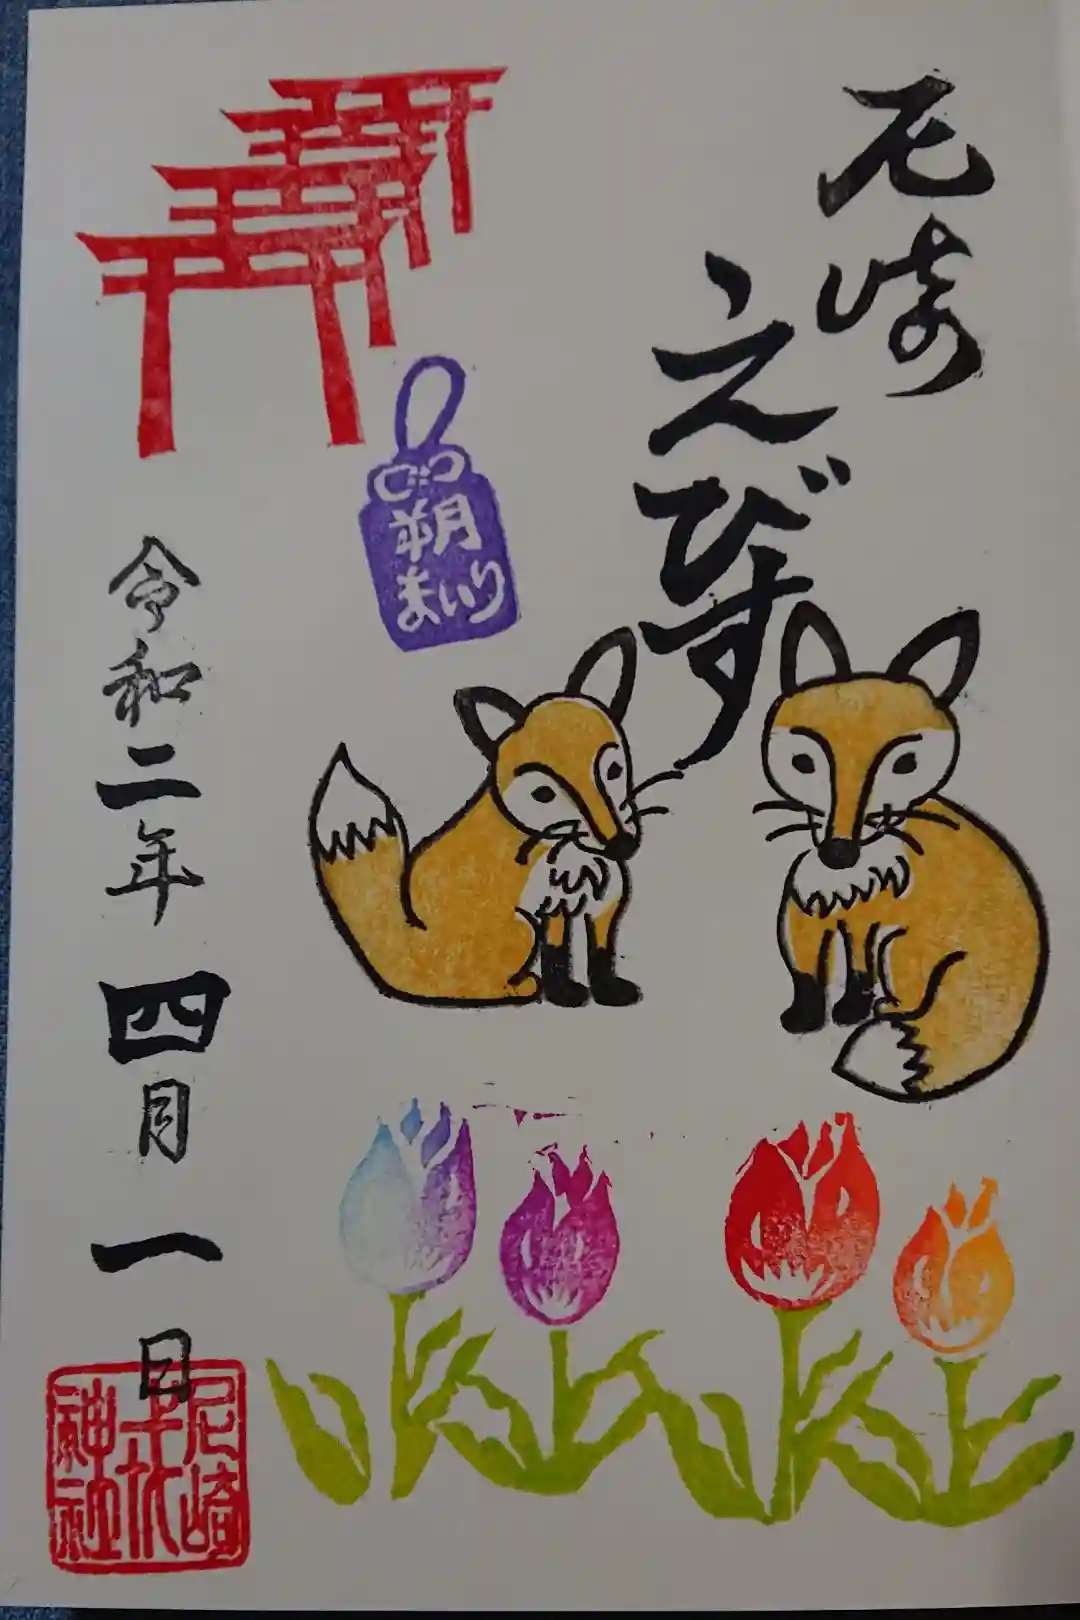 尼崎
えびす
朔
まいり
令和二年四月一日
尼崎
神社